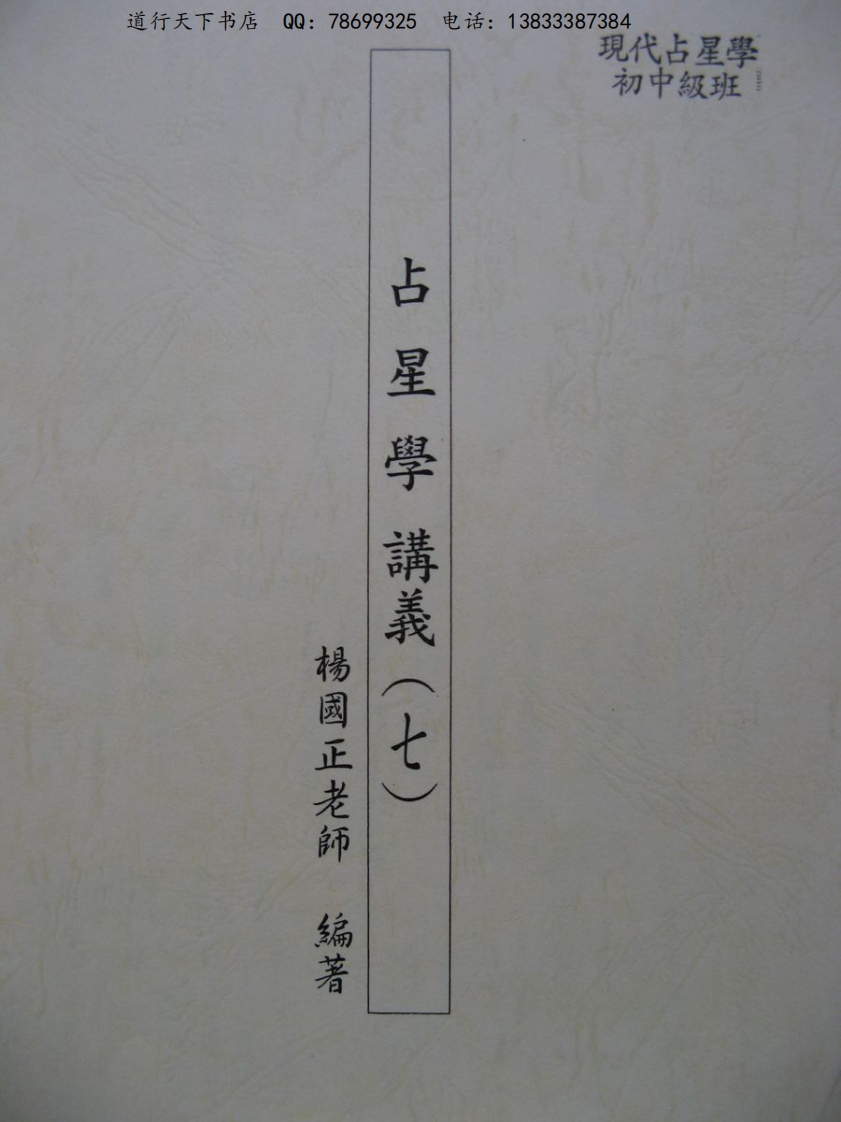 道行天下书店 QQ：78699325 电话：13833387384
現代占星學
初中級班
占星學講義（七）
楊國正老師 編著